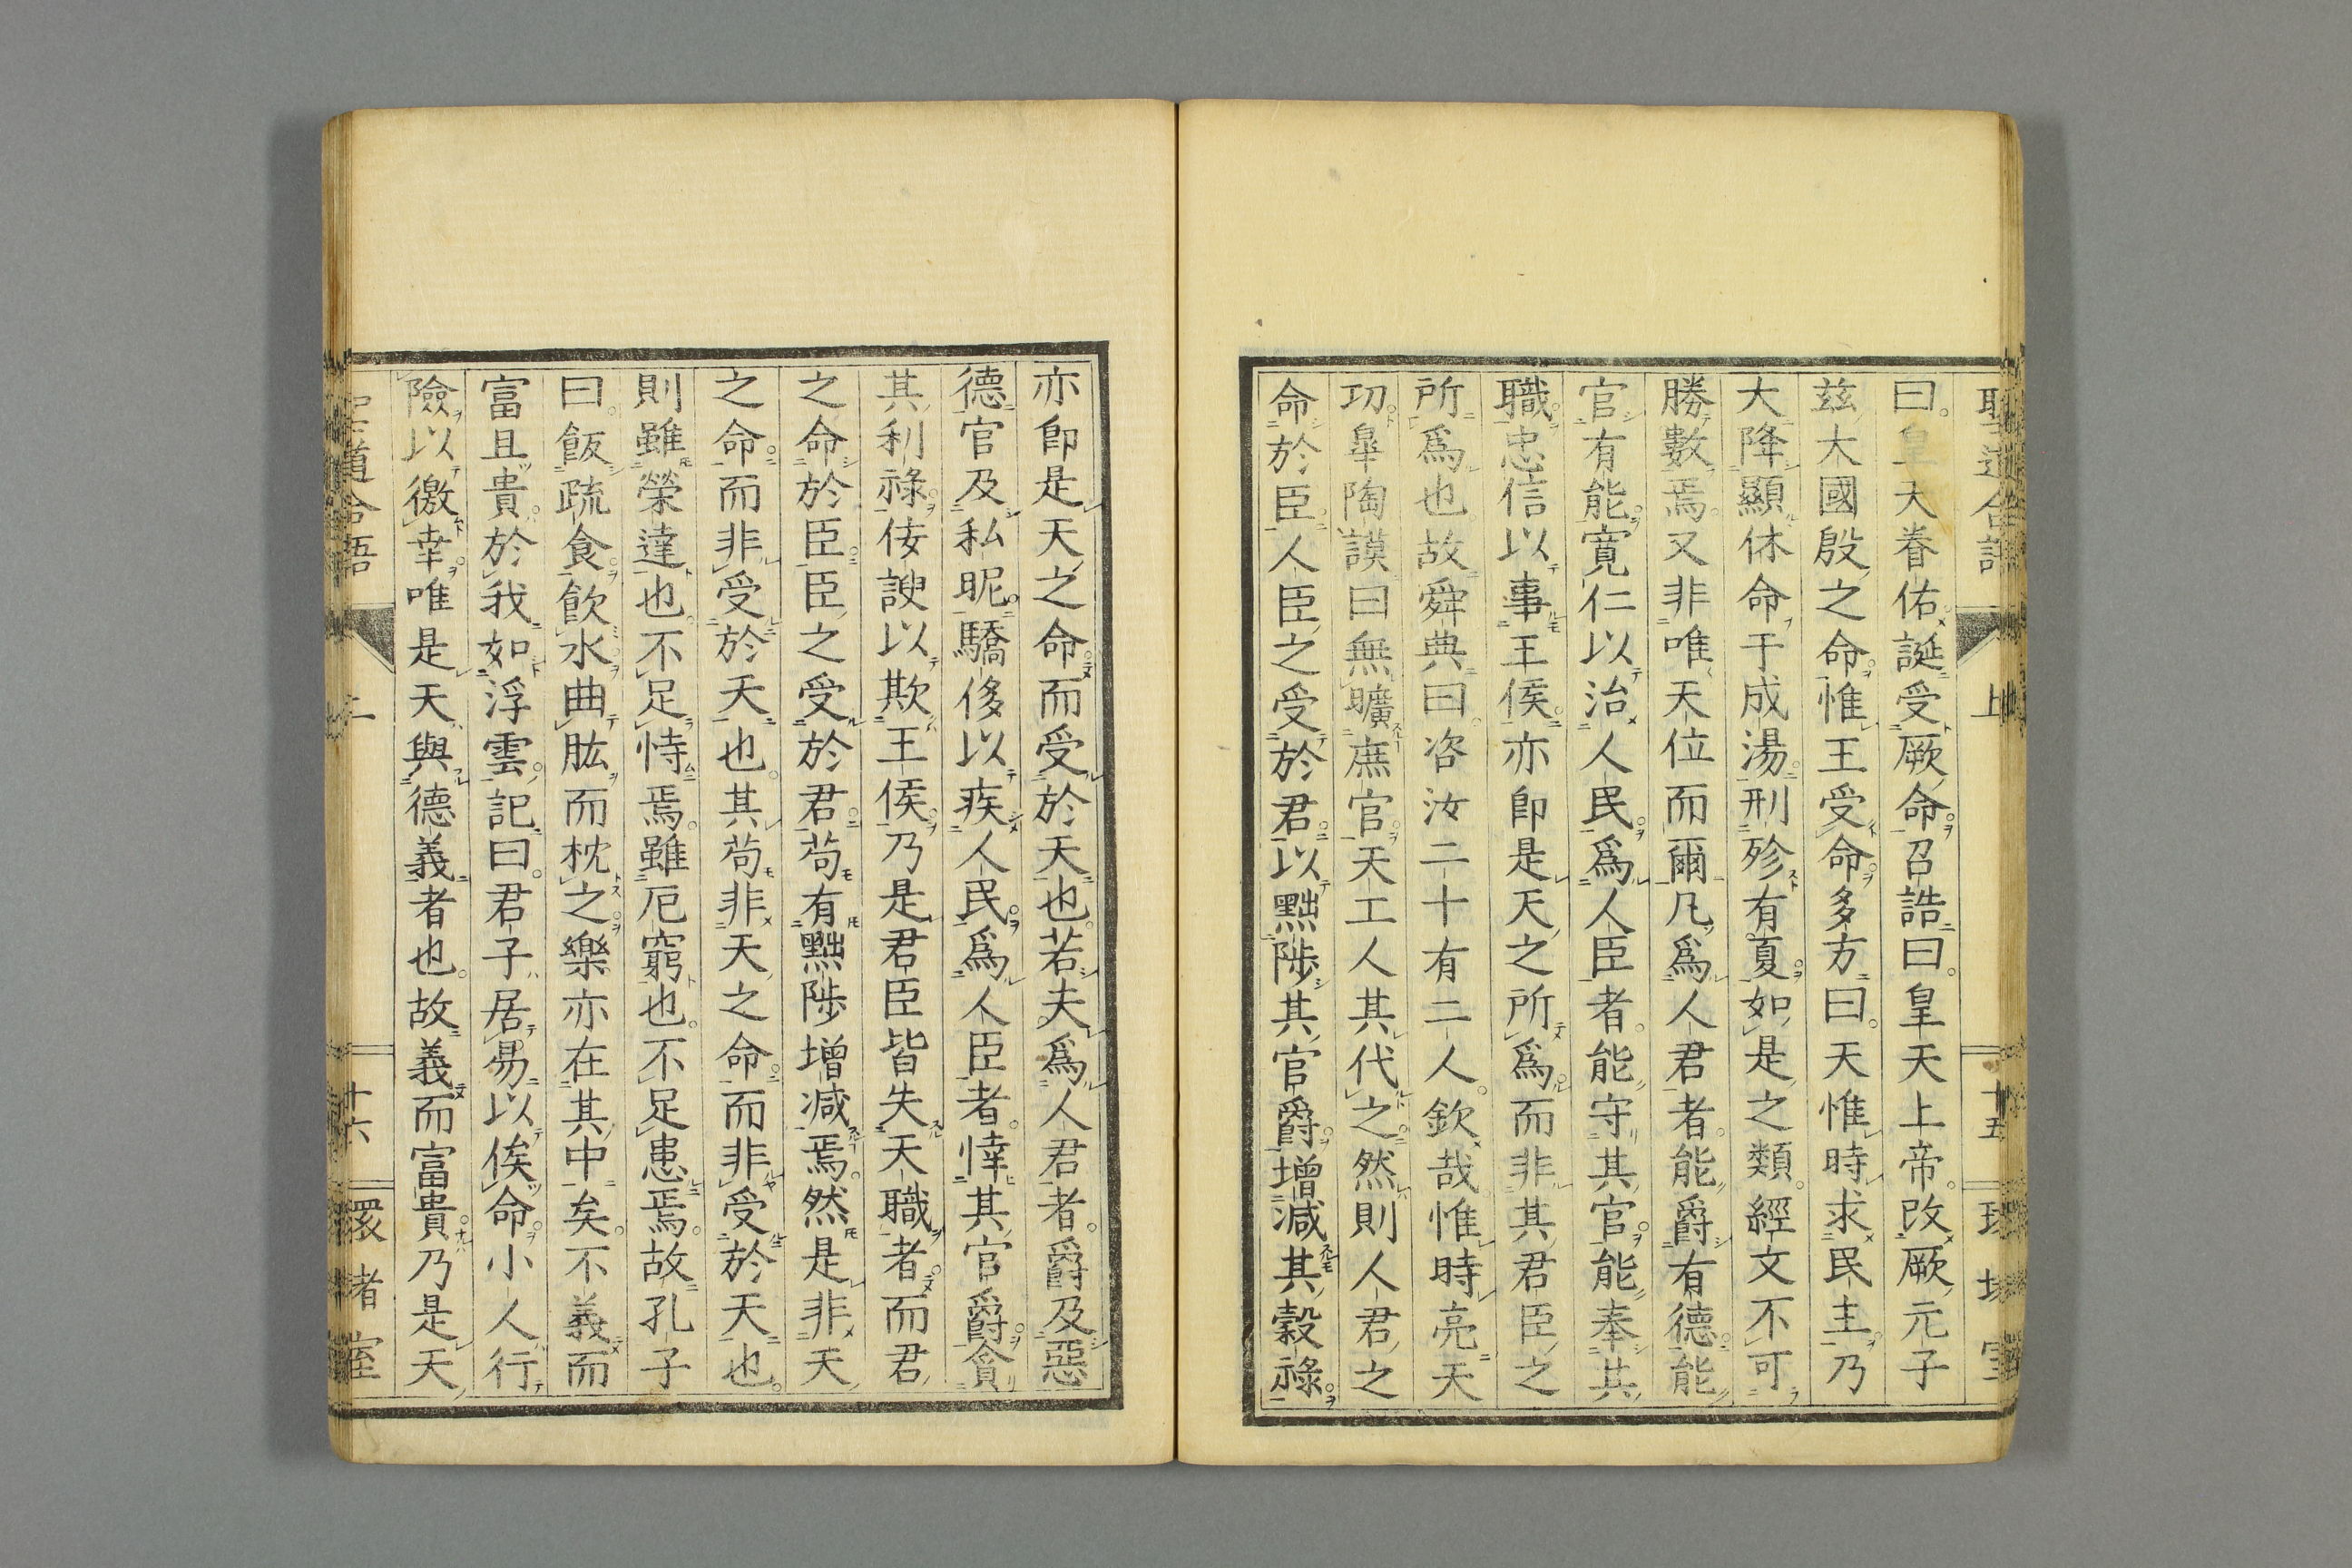 聖道合語 上 十五
曰皇天眷佑誕受厥命召誥曰皇天上帝改厥元子
茲大國殷之命惟王受命多方曰天惟時求民主乃
大降顯休命于成湯刑殄有夏如是之類經文不可
勝數焉又非唯天位而爾凡爲人君者能爵有德能
官有能寬仁以治人民爲人臣者能守其官能奉其
職忠信以事王侯亦卽是天之所爲而非其君臣之
所爲也故舜典曰咨汝二十有二人欽哉惟時亮天
功皐陶謨曰無曠庶官天工人其代之然則人君之
命於臣人臣之受於君以黜陟其官爵增減其穀祿
亦卽是天之命而受於天也若夫爲人君者爵及惡
德官及私昵驕侈以疾人民爲人臣者悻其官爵貪
其利祿侫諛以欺王侯乃是君臣皆失天職者而君
之命於臣臣之受於君苟有黜陟增減焉然是非天
之命而非受於天也其苟非天之命而非受於天也
則雖榮達也不足恃焉雖厄窮也不足患焉故孔子
曰飯疏食飮水曲肱而枕之樂亦在其中矣不義而
富且貴於我如浮雲記曰君子居易以俟命小人行
險以徼幸唯是天與德義者也故義而富貴乃是天
聖道合語 上 十六 環堵室